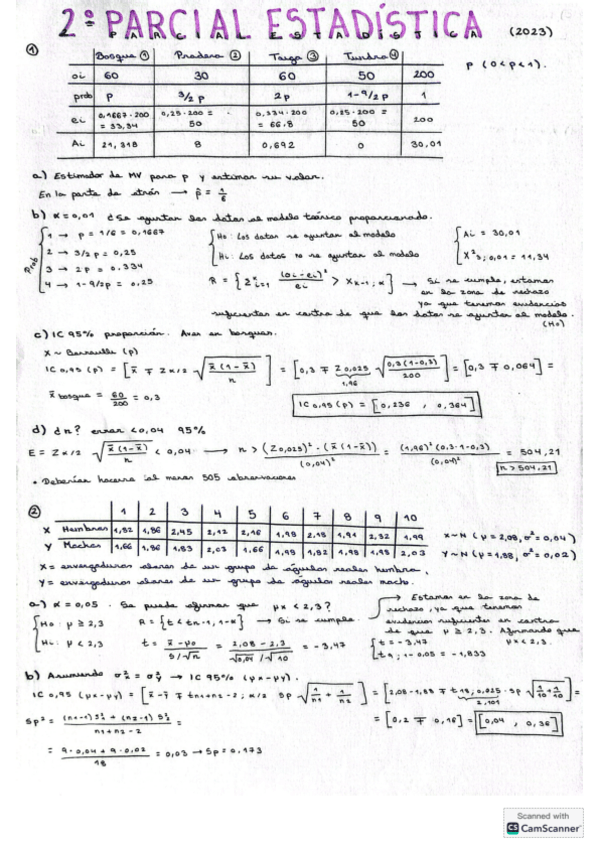 2º PARCIAL ESTADÍSTICA (2023)
①
Bosque ① Pradera ② Taiga ③ Tundra ④
oi 60 30 60 50 200
p (0<p<1).
prob p 3/2 p 2p 1-9/2 p 1
ei 0,1667·200 = 33,34 0,25·200 = 50 0,334·200 = 66,8 0,25·200 = 50 200
Ai 21,318 8 0,692 0 30,01
a) Estimador de MV para p y estimar su valor.
En la parte de atrás → p̂ = 1/6
b) α=0,01 ¿Se ajustan los datos al modelo teórico proporcionado.
Prob
1 → p = 1/6 = 0,1667
2 → 3/2 p = 0,25
3 → 2p = 0,334
4 → 1-9/2p = 0,25
Ho: Los datos se ajustan al modelo
H1: Los datos no se ajustan al modelo
Ai = 30,01
X²3; 0,01 = 11,34
R = { Σ i=1 (oi-ei)²/ei > Xk-1; α } → Si se cumple, estamos
en la zona de rechazo
ya que tenemos evidencias
suficientes en contra de que los datos se ajustan al modelo.
(Ho)
c) IC 95% proporción. Aves en bosques.
X ~ Bernoulli (p)
IC 0,95 (p) = [x̄ ∓ Zα/2 √(x̄(1-x̄)/n)] = [0,3 ∓ Z0,025 √(0,3(1-0,3)/200)] = [0,3 ∓ 0,064] =
1,96
x̄ bosque = 60/200 = 0,3
IC 0,95 (p) = [0,236 , 0,364]
d) ¿n? error <0,04 95%
E = Zα/2 √(x̄(1-x̄)/n) < 0,04 → n > (Z0,025)²·(x̄(1-x̄))/(0,04)² = (1,96)²(0,3·1-0,3)/(0,04)² = 504,21
n > 504,21
• Deberían hacerse al menos 505 observaciones
②
1 2 3 4 5 6 7 8 9 10
X Hembras 1,82 1,86 2,45 2,12 2,16 1,98 2,15 1,91 2,32 1,99
X~N (μ = 2,08, σ² = 0,04)
Y Machos 1,66 1,86 1,83 2,03 1,66 1,98 1,82 1,98 1,95 2,03
Y~N (μ = 1,88, σ² = 0,02)
X = envergaduras alares de un grupo de águilas reales hembra.
Y = envergaduras alares de un grupo de águilas reales macho.
a) α = 0,05. Se puede afirmar que μx < 2,3?
Ho: μ ≥ 2,3
H1: μ < 2,3
R = {t < tn-1, 1-α} → Si se cumple.
Estamos en la zona de
rechazo, ya que tenemos
evidencias suficientes en contra
de que μ ≥ 2,3. Afirmando que
μx < 2,3.
t = (x̄-μo)/(s/√n) = (2,08-2,3)/(√0,04/√10) = -3,47
t = -3,47
t9; 1-0,05 = -1,833
b) Asumiendo σ²x = σ²y → IC 95% (μx-μy).
IC 0,95 (μx-μy) = [x̄-ȳ ∓ tn1+n2-2; α/2 Sp √(1/n1 + 1/n2)] = [2,08-1,88 ∓ t18; 0,025 · Sp √(1/10+1/10)] =
2,101
Sp² = ((n1-1) S²1 + (n2-1) S²2)/(n1+n2-2) =
= [0,2 ∓ 0,16] = [0,04 , 0,36]
= (9·0,04+9·0,02)/18 = 0,03 → Sp = 0,173
Scanned with
CS CamScanner